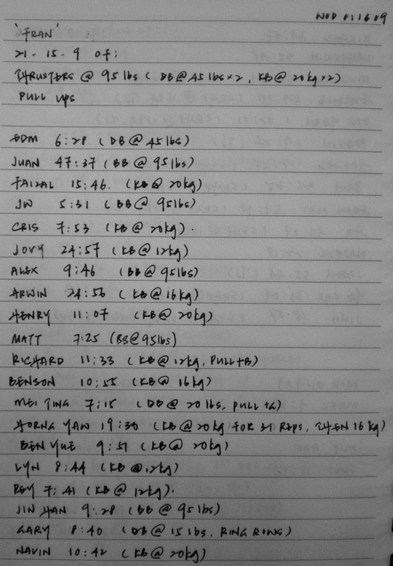 WOD 011609
'FRAN'
21-15-9 OF:
THRUSTERS @ 95 lbs ( DB@45 lbs×2, KB@ 20kg×2)
PULL UPS
EDM 6:28 (DB@45 lbs)
JUAN 47:37 (BB@ 95lbs)
FAIZAL 15:46. (KB@ 20kg)
JW 5:31 (BB@ 95lbs)
CRIS 7:53 (KB@ 20kg).
JOVY 24:57 (KB@ 12kg)
ALEX 9:46 (BB@ 95lbs)
ARWIN 24:56 (KB@ 16kg)
HENRY 11:07 (KB@ 20kg)
MATT 7:25 (BB@95lbs)
RICHARD 11:33 (KB@ 12kg, PULL+B)
BENSON 10:55 (KB@ 16kg)
MEI TING 7:15 (DB@ 20 lbs, PULL+G)
HORNG YAN 19:38 (KB@ 20kg FOR 21 REPS, THEN 16kg)
BEN YUE 9:51 (KB@ 20kg)
LYN 8:44 (KB@ 12kg)
BEY 7:41 (KB@ 12kg).
JIN HAN 9:28 (BB@ 95lbs)
GARY 8:40 (DB@ 15 lbs, RING ROWS)
NAVIN 10:42 (KB@ 20kg)